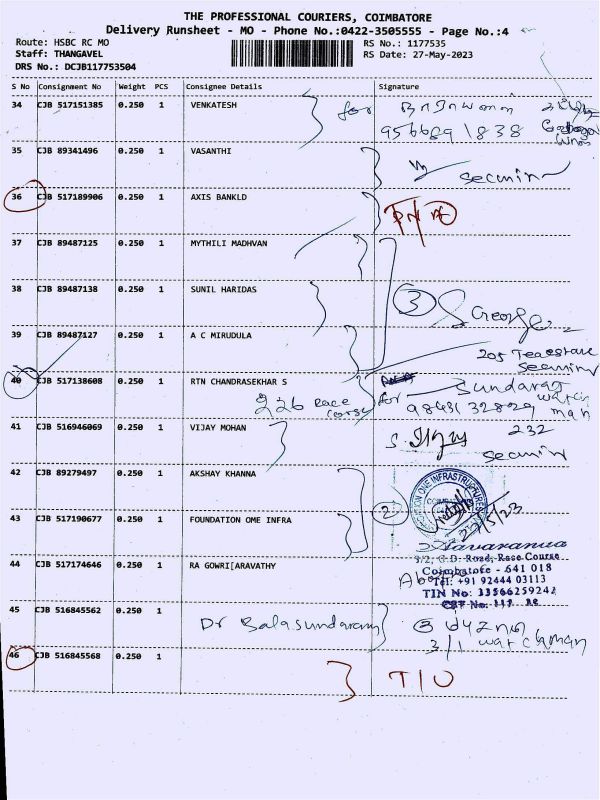 THE PROFESSIONAL COURIERS, COIMBATORE
Delivery Runsheet - MO - Phone No.:0422-3505555 - Page No.:4
Route: HSBC RC MO RS No.: 1177535
Staff: THANGAVEL RS Date: 27-May-2023
DRS No.: DCJB117753504
S No Consignment No Weight PCS Consignee Details Signature
34 CJB 517151385 0.250 1 VENKATESH for
956689 1838
35 CJB 89341496 0.250 1 VASANTHI
36 CJB 517189906 0.250 1 AXIS BANKLD
37 CJB 89487125 0.250 1 MYTHILI MADHVAN
38 CJB 89487138 0.250 1 SUNIL HARIDAS 3 George
39 CJB 89487127 0.250 1 A C MIRUDULA
205
40 CJB 517138608 0.250 1 RTN CHANDRASEKHAR S Sundaraj
226 race for watch man
41 CJB 516946069 0.250 1 VIJAY MOHAN 232
42 CJB 89279497 0.250 1 AKSHAY KHANNA 2
43 CJB 517190677 0.250 1 FOUNDATION OME INFRA
44 CJB 517174646 0.250 1 RA GOWRI[ARAVATHY
3/2, G.D. Road, Race Course
Coimbatore - 641 018
Tel: +91 92444 03113
TIN No:
CST No:
45 CJB 516845562 0.250 1
Dr Balasundaram
3/1 watchman
46 CJB 516845568 0.250 1
T/U